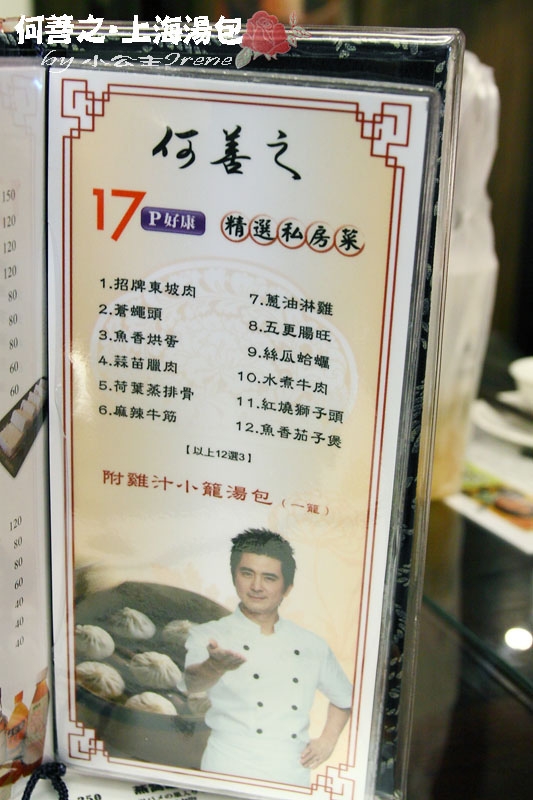 何善之·上海湯包
by 小公主Irene
何善之
17P好康 精選私房菜
1.招牌東坡肉
2.蒼蠅頭
3.魚香烘蛋
4.蒜苗臘肉
5.荷葉蒸排骨
6.麻辣牛筋
7.蔥油淋雞
8.五更腸旺
9.絲瓜蛤蠣
10.水煮牛肉
11.紅燒獅子頭
12.魚香茄子煲
【以上12選3】
附雞汁小籠湯包（一籠）
150
120
120
120
80
80
80
60
60
120
80
80
60
40
40
40
250